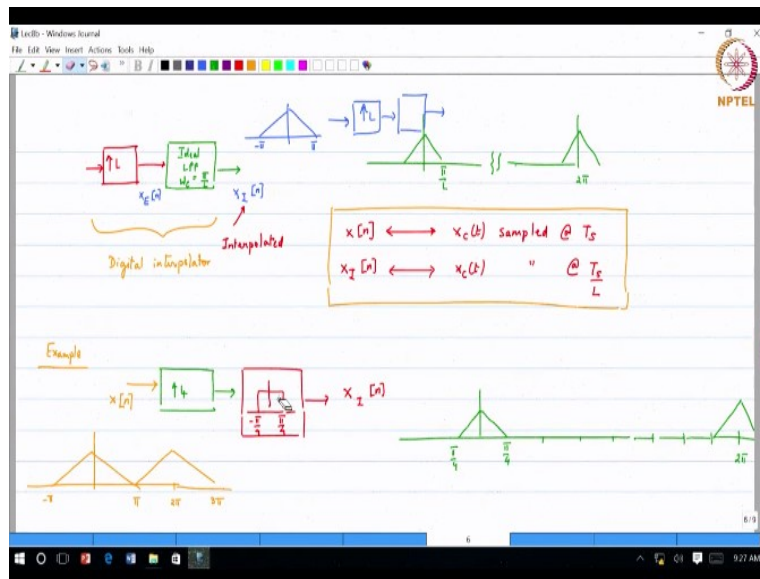 Lec8b - Windows Journal
File Edit View Insert Actions Tools Help
NPTEL
↑L
Ideal
LPF
ω_c = π/L
x_E[n]
x_I[n]
Interpolated
Digital interpolator
-π π
↑L
π/L
2π
x[n] ⟷ x_c(t) sampled @ T_s
x_I[n] ⟷ x_c(t) " @ T_s/L
Example
x[n]
↑4
x_I[n]
-π π 2π 3π
π/4 π/4 2π
6
6/9
9:27 AM